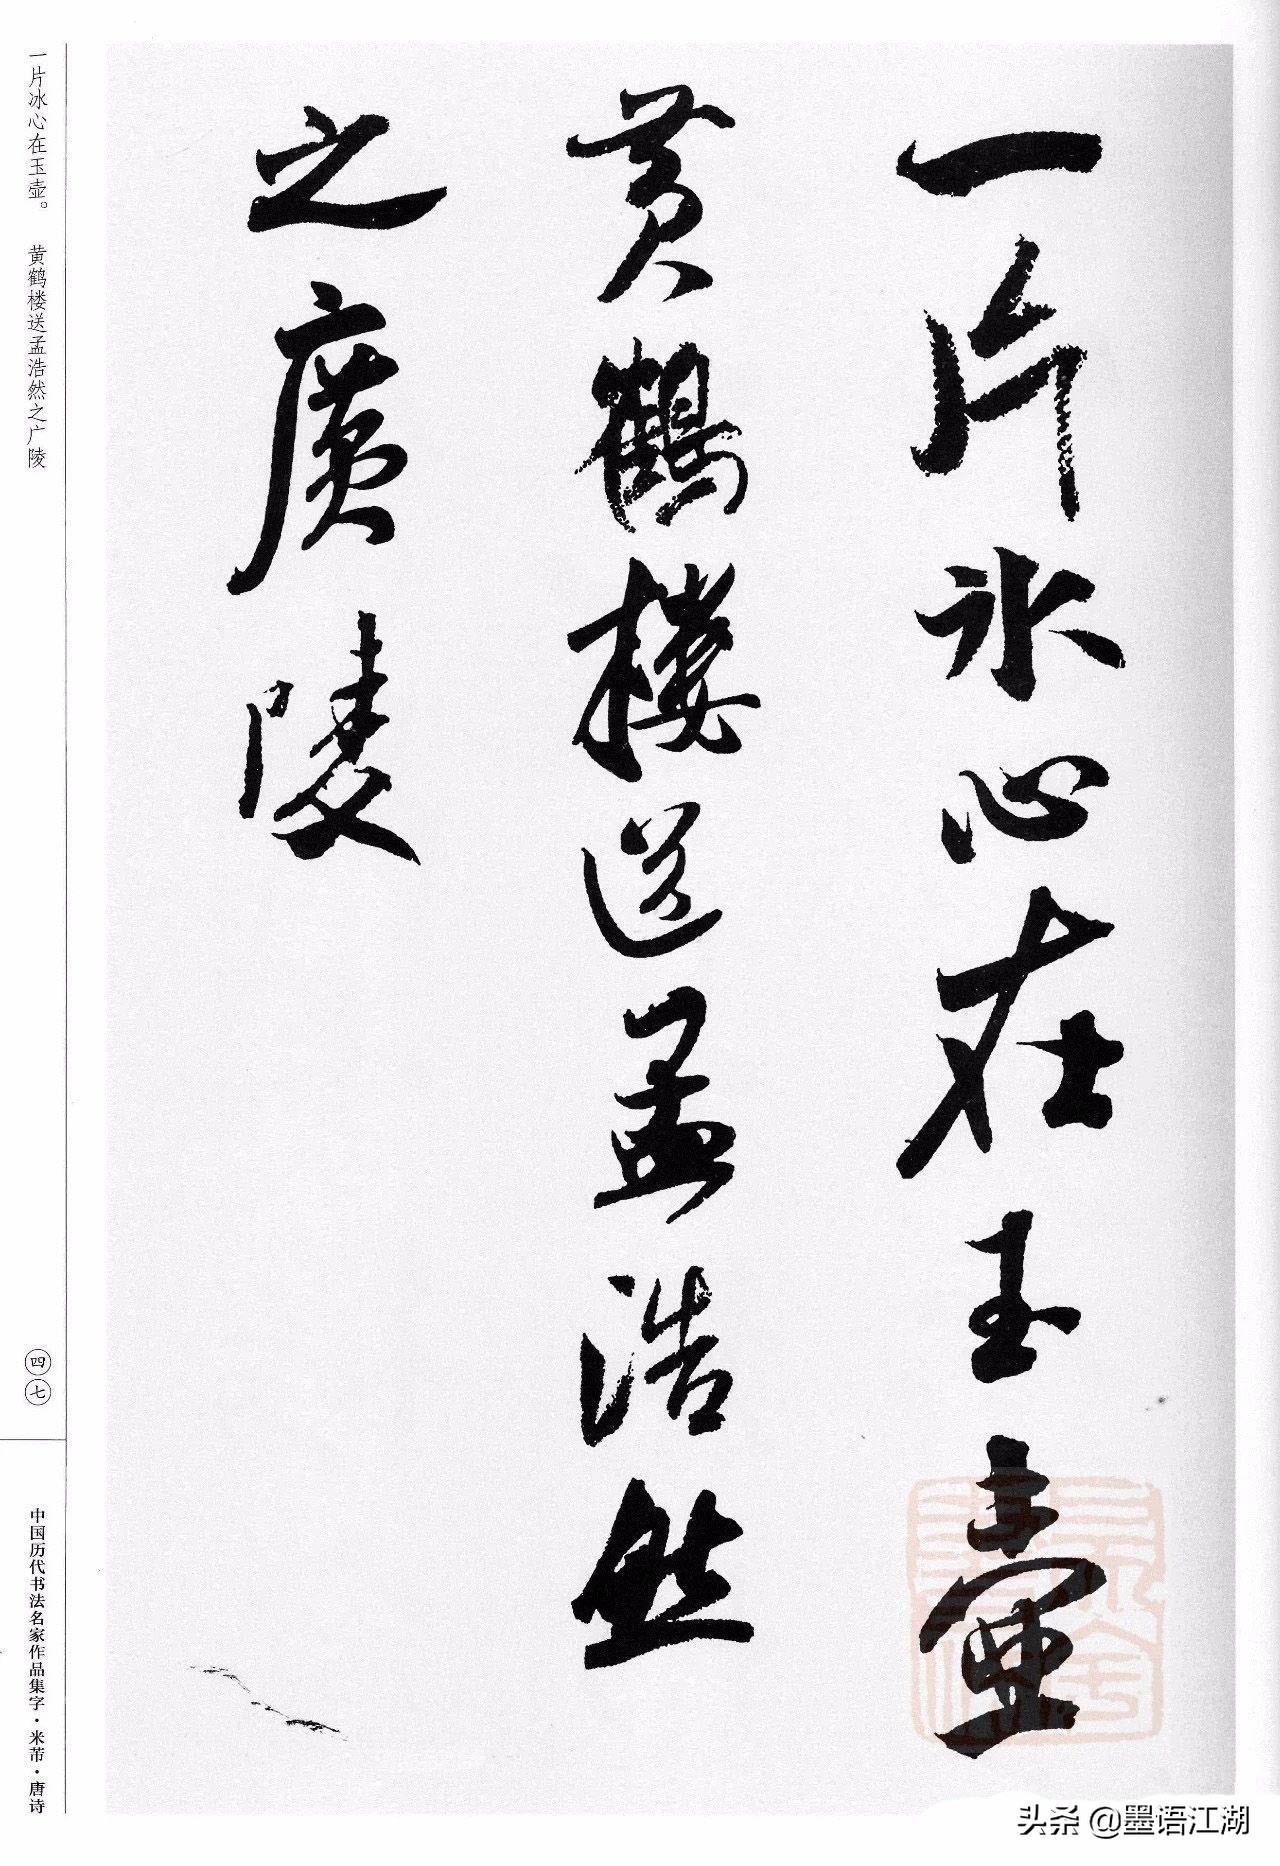 一片冰心在玉壺
黄鶴樓送孟浩然
之廣陵
一片冰心在玉壶。 黄鹤楼送孟浩然之广陵
四七
中国历代书法名家作品集字·米芾·唐诗
头条 @墨语江湖